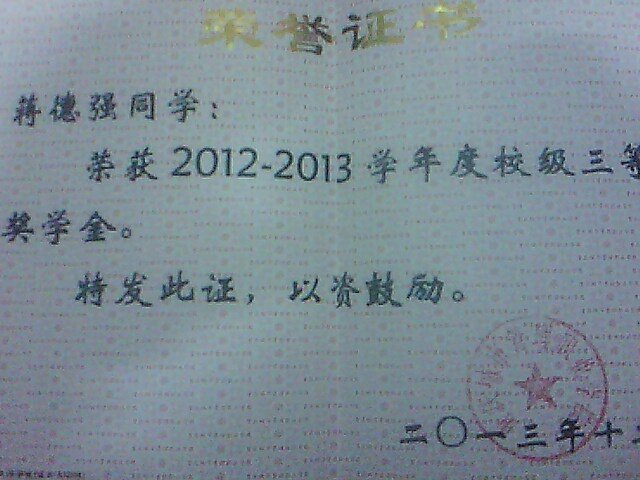 荣誉证书
蒋德强同学：
荣获2012-2013学年度校级三等
奖学金。
特发此证，以资鼓励。
二〇一三年十二